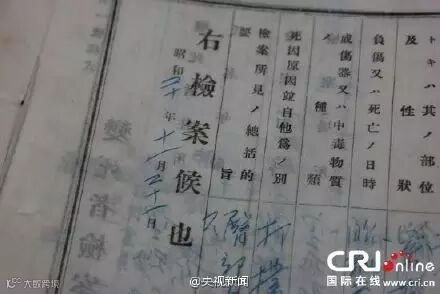 トキハ其ノ部位
及性狀
負傷又ハ死亡ノ日時
成傷器又ハ中毒物質
ノ種類
死因原因竝自他爲ノ別
檢案所見ノ總括的
要旨
打撲
右檢案候也
昭和二十年十一月二十一日
變死者檢案
大数跨境
@央视新闻
CRI
online
国际在线
cri.cn